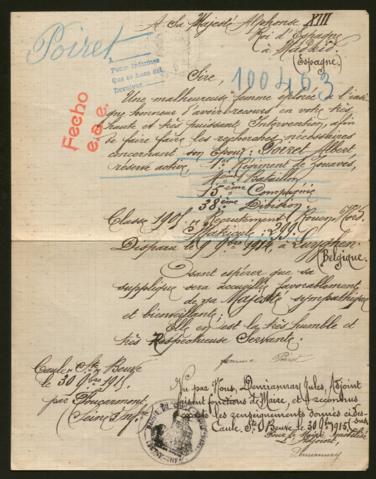 A Sa Majesté Alphonse XIII
Roi d'Espagne
à Madrid
(Espagne)
Poiret
Sire,
100463
Fecho
Une malheureuse femme éplorée a l'
honneur d'avoir recours en votre très
haute et très puissante Intervention, afin
de faire faire les recherches nécessaires
concernant son Epoux: Poiret Albert
réserve active, 1er Régiment de Zouaves,
Bataillon
15ème Compagnie
38ème Division
Classe 1901 - Recrutement (Rouen Nord)
Matricule: 299.
Disparu le 9 9bre 1914, à
(Belgique)
Osant espérer que sa
supplique sera accueillie favorablement
de sa Majesté sympathique
et bienveillante;
Elle en est la très humble et
très Respectueuse Servante.
femme Poiret
Caule-Ste Beuve
le 30 9bre 1915
par Foucarmont
(Seine Infre)
Vu par Nous, Jules, Adjoint
faisant fonctions de Maire, et reconnus
exacts les renseignements donnés ci-dessus
Caule Ste Beuve le 30 9bre 1915
Pour le Maire
l'Adjoint,